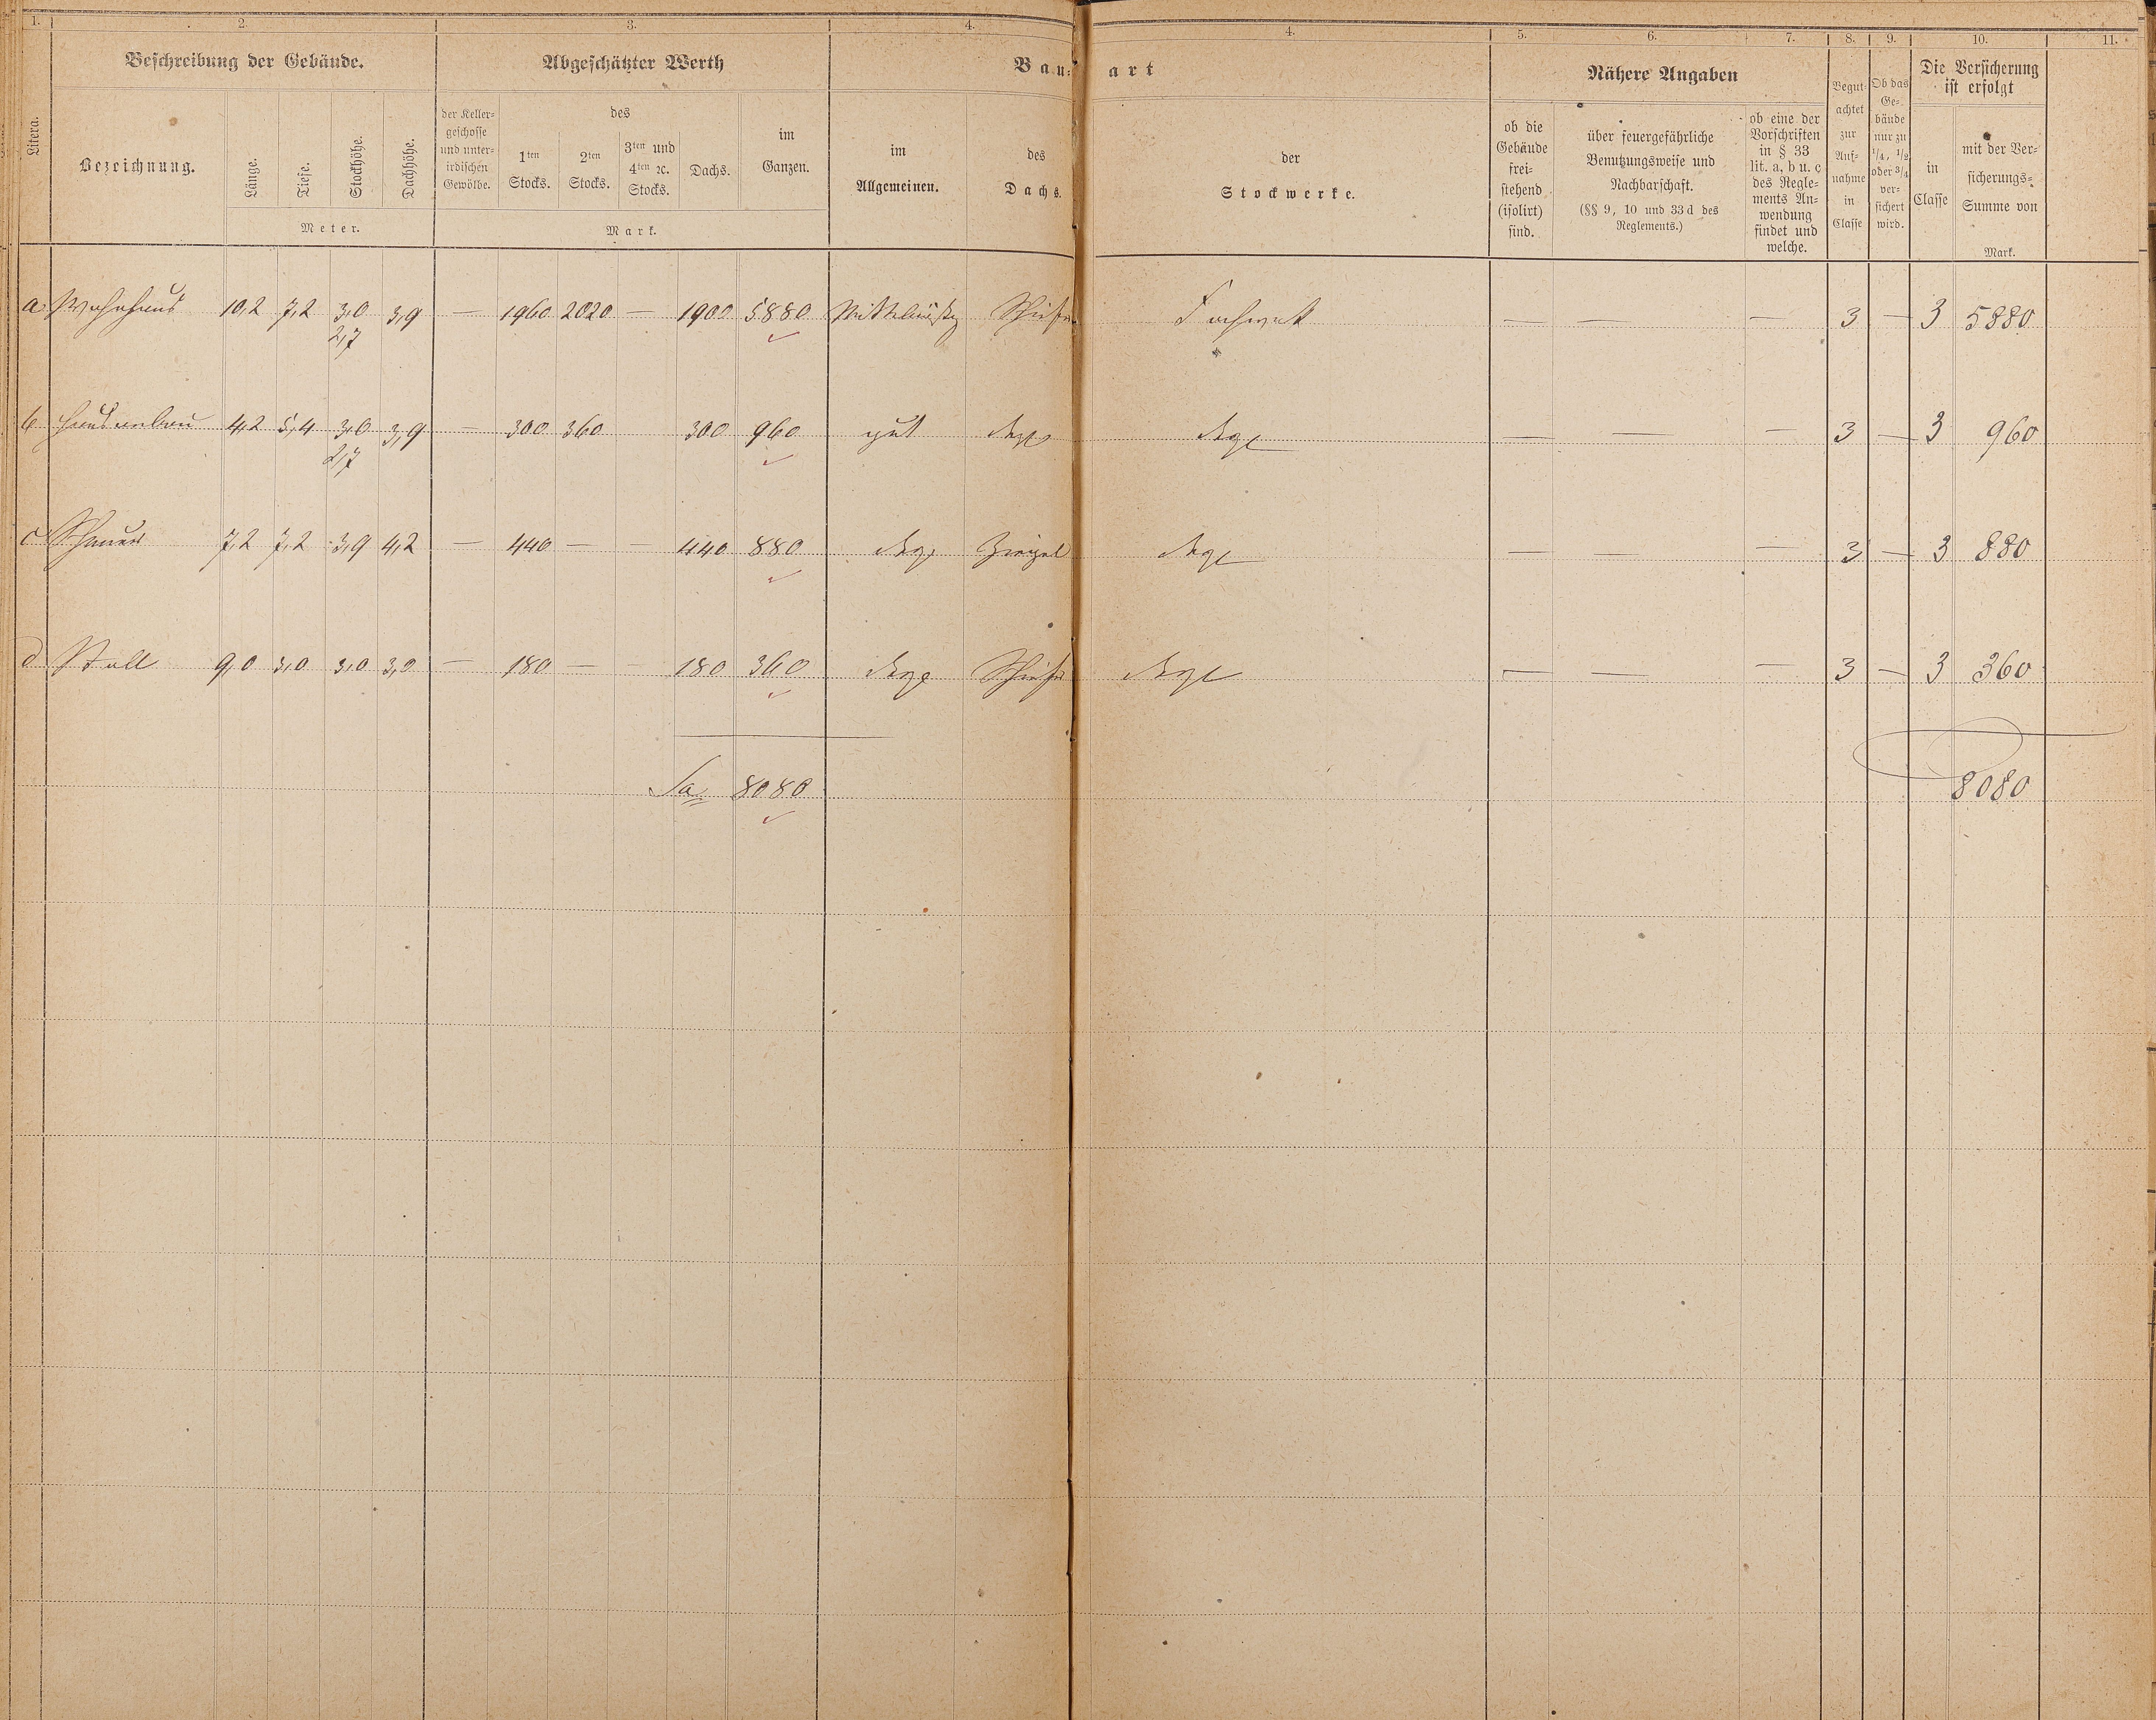 1. 2. 3. 4. 4. 5. 6. 7. 8. 9. 10. 11.
Litera.
Beschreibung der Gebäude.
Bezeichnung.
Länge.
Tiefe.
Stockhöhe.
Dachhöhe.
Meter.
Abgeschätzter Werth
der Keller-
geschosse
und unter-
irdischen
Gewölbe.
des
1ten
Stocks.
2ten
Stocks.
3ten und
4ten ꝛc.
Stocks.
Dachs.
im
Ganzen.
Mark.
Bau- art
im
Allgemeinen.
des
Dachs.
der
Stockwerke.
Nähere Angaben
ob die
Gebäude
frei-
stehend
(isolirt)
sind.
über feuergefährliche
Benutzungsweise und
Nachbarschaft.
(§§ 9, 10 und 33 d des
Reglements.)
ob eine der
Vorschriften
in § 33
lit. a, b u. c
des Regle-
ments An-
wendung
findet und
welche.
Begut-
achtet
zur
Auf-
nahme
in
Classe
Ob das
Ge-
bäude
nur zu
1/4, 1/2
oder 3/4
ver-
sichert
wird.
Die Versicherung
ist erfolgt
in
Classe
mit der Ver-
sicherungs-
Summe von
Mark.
a Wohnhaus 10,2 7,2 3,0 3,9 — 1960 2020 — 1900 5880 Mittelmäßig Schiefer Fachwerk — — — 3 — 3 5880
2,7
b Hausanbau 4,2 5,4 3,0 3,9 — 300 360 300 960 gut dsgl dsgl — — — 3 — 3 960
2,7
c Scheuer 7,2 7,2 3,9 4,2 — 440 — — 440 880 dsgl Ziegel dsgl — — — 3 — 3 880
d Stall 9,0 3,0 3,0 3,0 — 180 — — 180 360 dsgl Schiefer dsgl — — — 3 — 3 360
Sa. 8080 8080